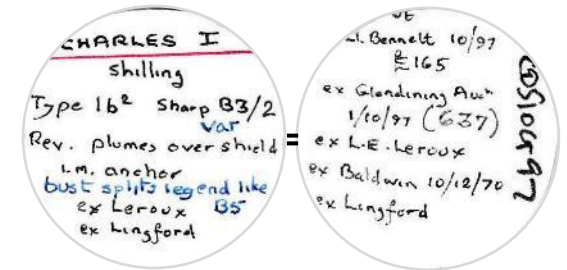 CHARLES I
Shilling
Type 1b² Sharp B3/2
var
Rev. plumes over shield
i.m. anchor
bust splits legend like
ex Leroux B5
ex Lingford
=
Bennett 10/97
£165
ex Glendining Auct
1/10/97 (637)
ex L.E. Leroux
ex Baldwin 10/12/70
ex Lingford